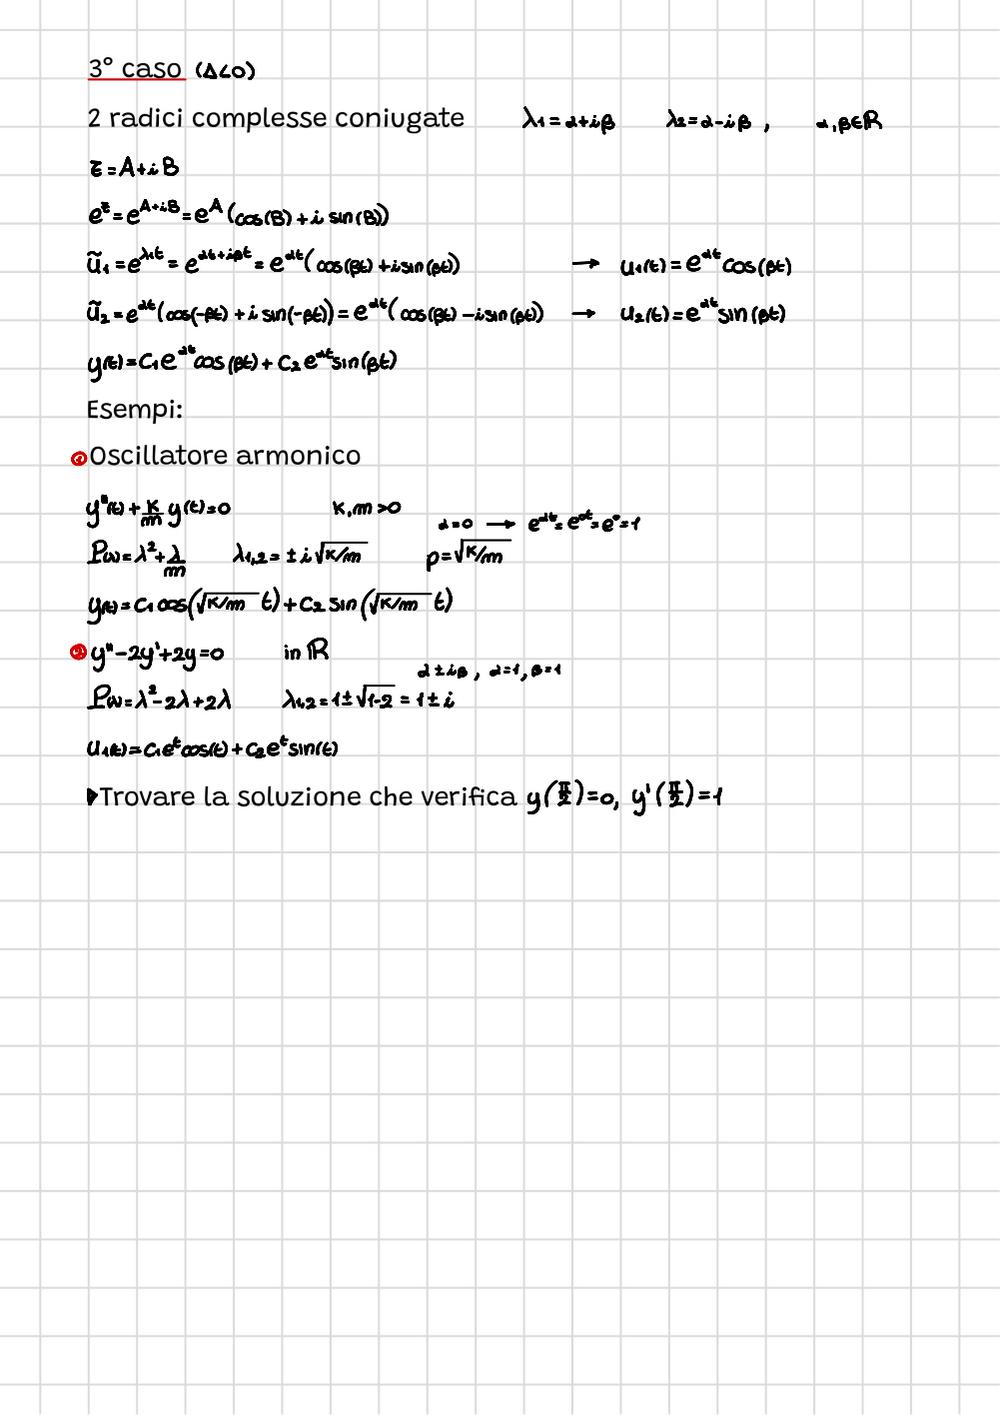 3° caso (Δ<0)
2 radici complesse coniugate λ₁=α+iβ λ₂=α-iβ , α,β∈ℝ
z=A+iB
e^z=e^(A+iB)=e^A(cos(B)+i sin(B))
ũ₁=e^(λ₁t)=e^(αt+iβt)=e^(αt)(cos(βt)+isin(βt)) → u₁(t)=e^(αt)cos(βt)
ũ₂=e^(αt)(cos(-βt)+i sin(-βt))=e^(αt)(cos(βt)-isin(βt)) → u₂(t)=e^(αt)sin(βt)
y(t)=C₁e^(αt)cos(βt)+C₂e^(αt)sin(βt)
Esempi:
① Oscillatore armonico
y"(t)+K/m y(t)=0 K,m>0
α=0 → e^(αt)=e^(0t)=e^0=1
P(λ)=λ²+λ/m λ₁,₂=±i√(K/m) β=√(K/m)
y(t)=C₁cos(√(K/m) t)+C₂sin(√(K/m) t)
② y"-2y'+2y=0 in ℝ
α±iβ, α=1, β=1
P(λ)=λ²-2λ+2λ λ₁,₂=1±√(1-2)=1±i
u₁(t)=C₁e^t cos(t)+C₂e^t sin(t)
▶Trovare la soluzione che verifica y(π/2)=0, y'(π/2)=1